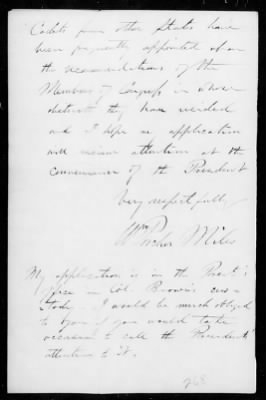 Cadets from other States have
been frequently appointed upon
the recommendations of the
Members of Congress in whose
districts they have resided
and I hope my application
will receive attention at the
convenience of the President
Very respectfully
Wm Porcher Miles
My application is in the Prest's
office in Col. Browne's cus-
tody. I would be much obliged
to you if you would take
occasion to call the President's
attention to it.
268